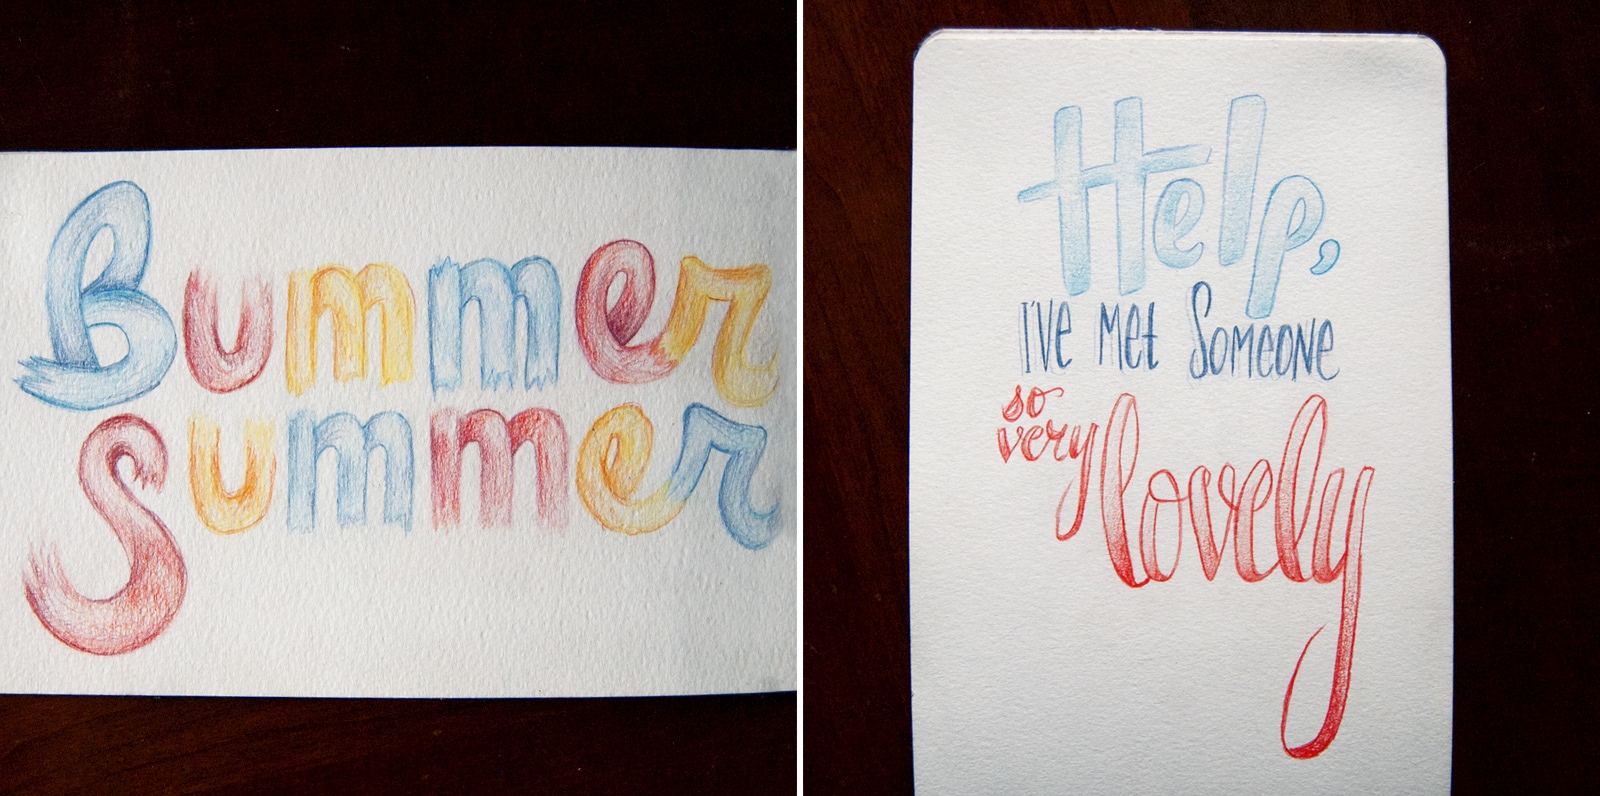 Bummer
Summer
Help,
I've met Someone
so
very
lovely